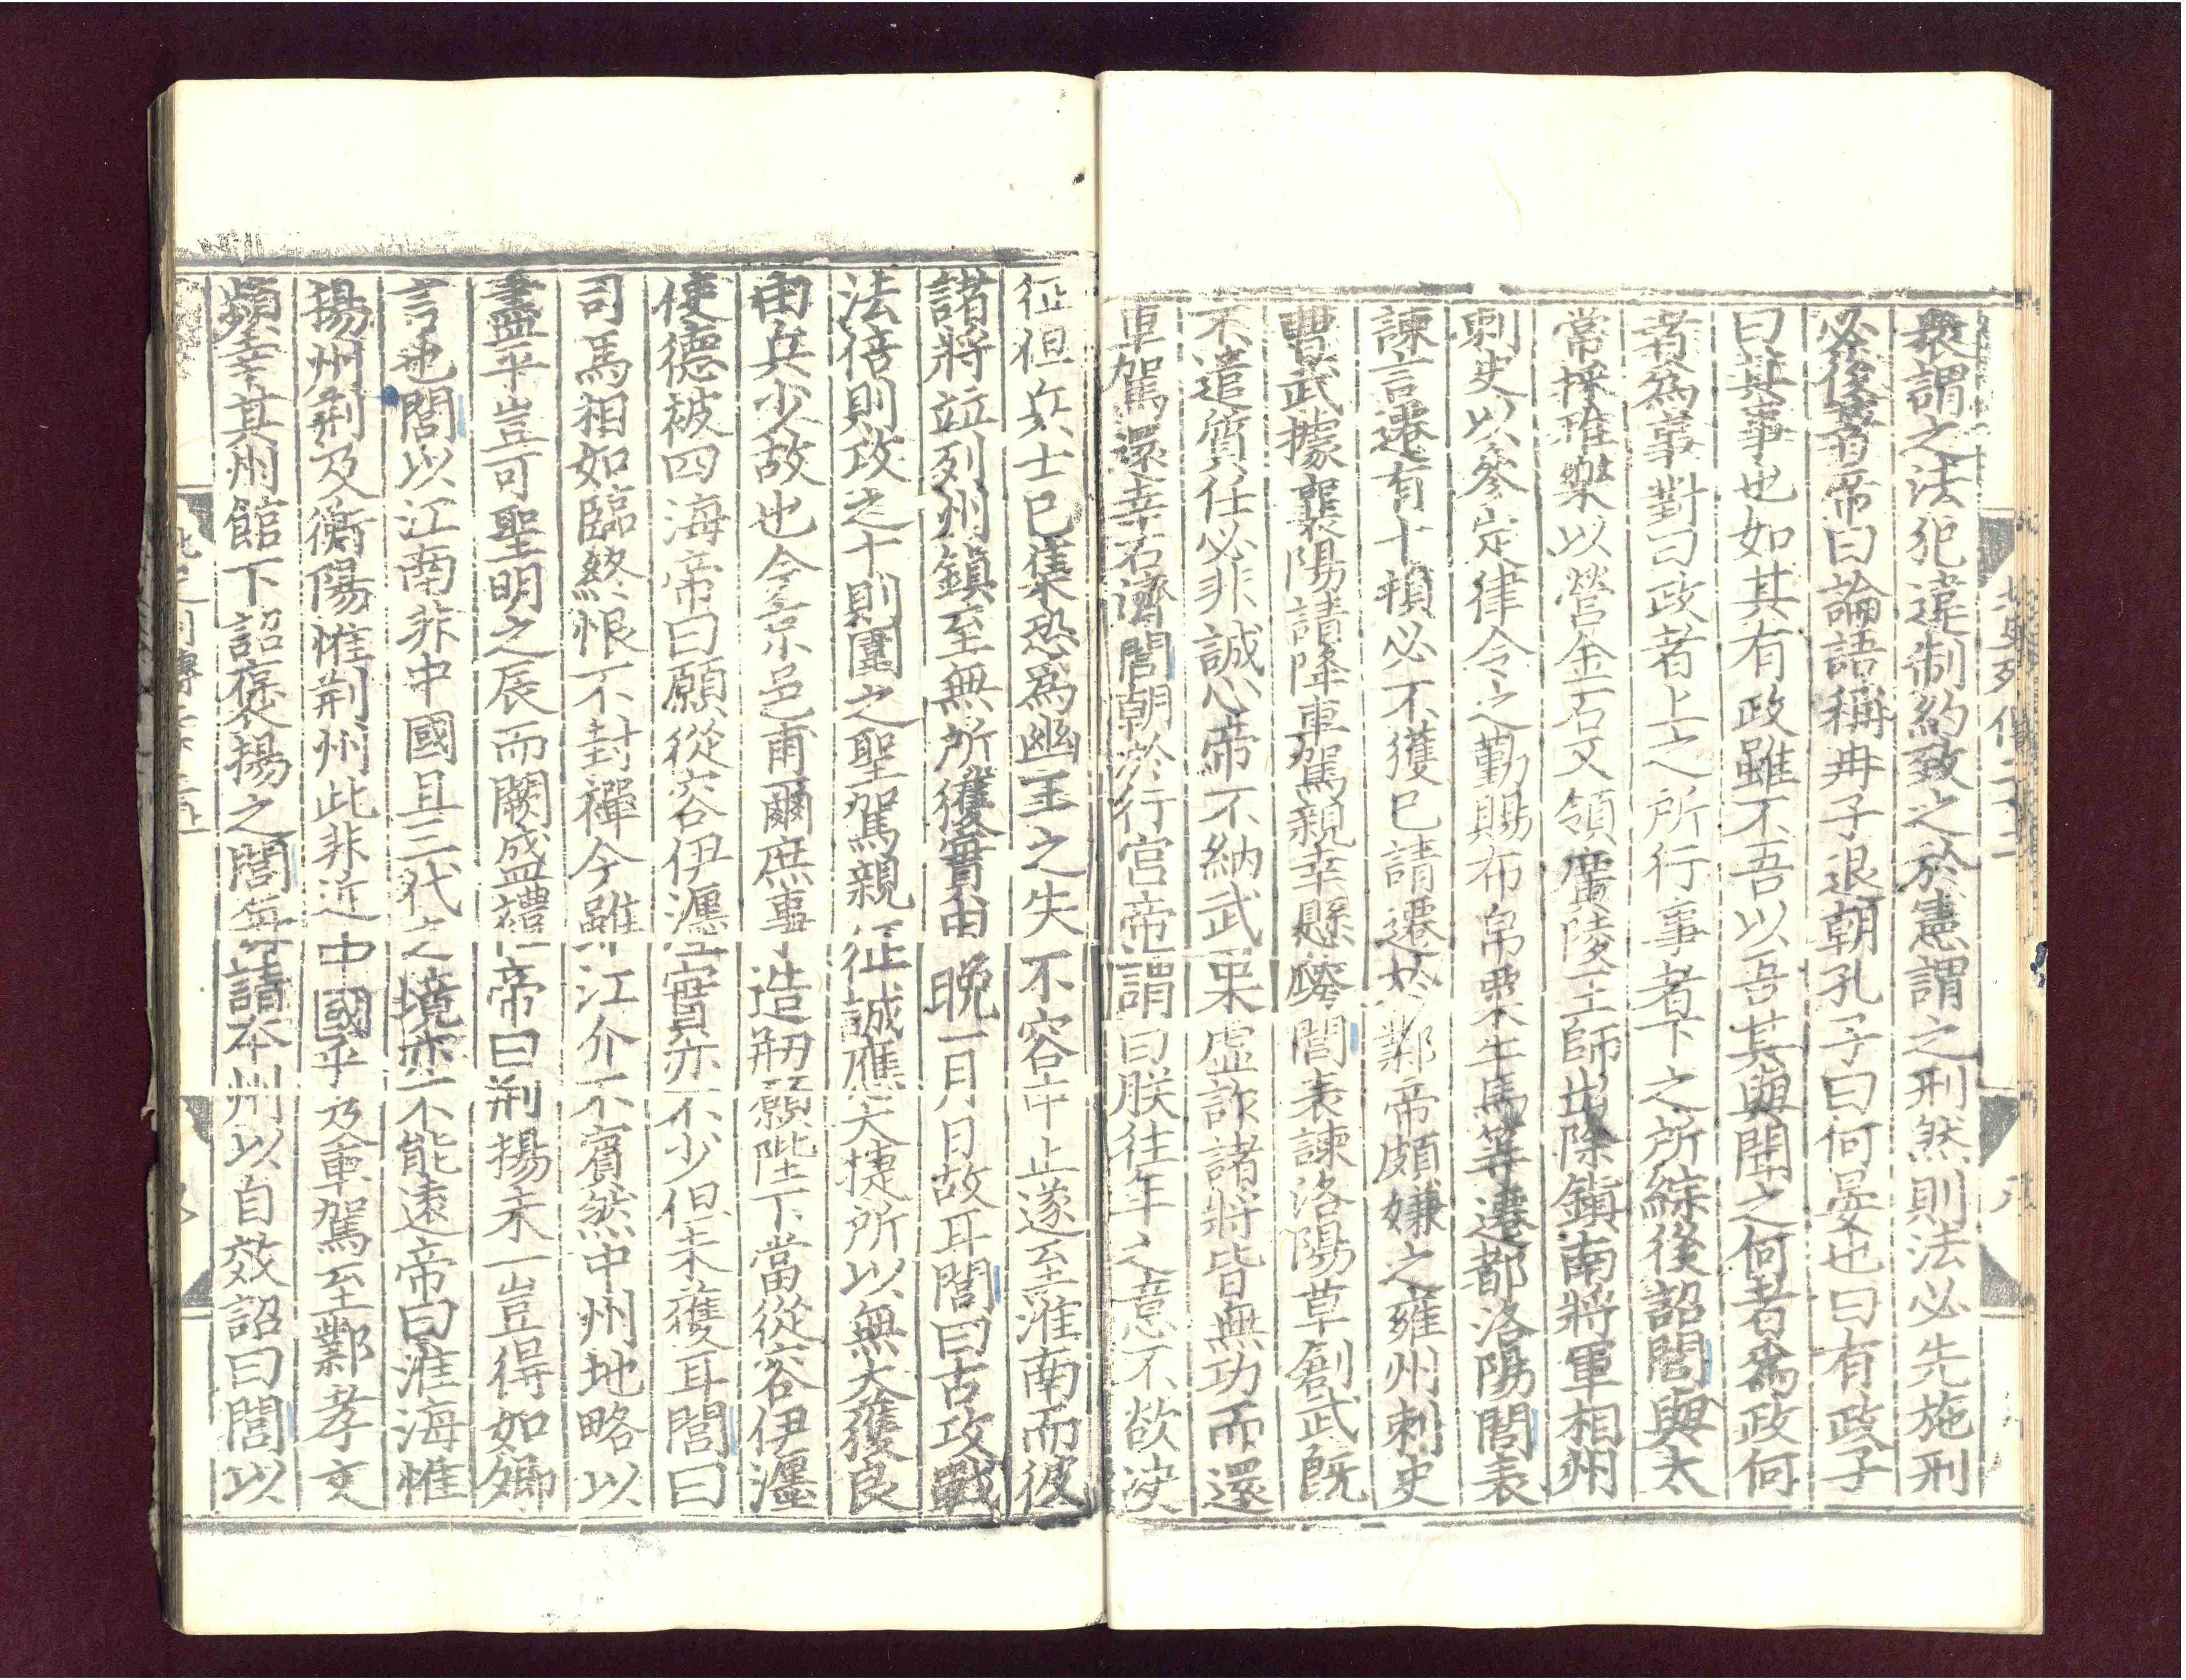 北史列傳二十二
衆謂之法犯違制約致之於憲謂之刑然則法必先施刑
必後著帝曰論語稱冉子退朝孔子曰何晏也曰有政子
曰其事也如其有政雖不吾以吾其與聞之何者爲政何
者爲事對曰政者上之所行事者下之所綜後詔閭與太
常採雅樂以營金石又領廣陵王師出除鎮南將軍相州
刺史以參定律令之勤賜布帛粟牛馬等遷都洛陽閭表
諫言遷有十損必不獲巳請遷於鄴帝頗嫌之雍州刺史
曹武據襄陽請降車駕親幸懸瓠閭表諫洛陽草創武既
不遣質任必非誠心帝不納武果虛詐諸將皆無功而還
車駕還幸石濟閭朝於行宮帝謂曰朕往年之意不欲决
征但兵士巳集恐爲幽王之失不容中止遂至淮南而彼
諸將竝列州鎮至無所獲實由晚一月日故耳閭曰古攻戰
法倍則攻之十則圍之聖駕親征誠應大捷所以無大獲良
由兵少故也今京邑甫爾庶事造刱願陛下當從容伊瀍
使德被四海帝曰願從容伊瀍實亦不少但未獲耳閭曰
司馬相如臨終恨不封禪今雖江介不賓然中州地略以
盡平豈可聖明之辰而闕盛禮帝曰荆揚未一豈得如卿
言也閭以江南非中國且三代之境亦不能遠帝曰淮海惟
揚州荆及衡陽惟荆州此非近中國乎乃車駕至鄴孝文
頻幸其州館下詔襃揚之閭每請本州以自效詔曰閭以